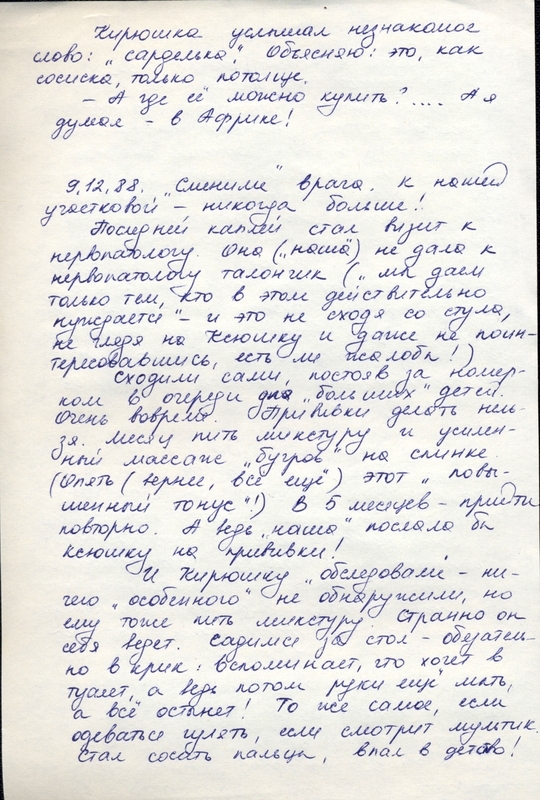 Кирюшка услышал незнакомое
слово: „сарделька". Объясняю: это, как
сосиска, только потолще.
– А где её можно купить?.... А я
думал – в Африке!
9.12.88. „Сменили" врача. К нашей
участковой – никогда больше!
Последней каплей стал визит к
невропатологу. Она („наша") не дала к
невропатологу талончик („мы даем
только тем, кто в этом действительно
нуждается" – и это не сходя со стула,
не глядя на Ксюшку и даже не поин-
тересовавшись, есть ли жалобы!)
Сходили сами, постояв за номер-
ком в очереди для „больших" детей.
Очень вовремя. Прививки делать нель-
зя. Месяц пить микстуру и усилен-
ный массаж „бугров" на спинке.
(Опять (вернее, всё ещё) этот „повы-
шенный тонус"!) В 5 месяцев – придти
повторно. А ведь „наша" послала бы
Ксюшку на прививки!
И Кирюшку „обследовали" – ни-
чего „особенного" не обнаружили, но
ему тоже пить микстуру. Странно он
себя ведет. Садимся за стол – обязатель-
но в крик: вспоминает, что хочет в
туалет, а ведь потом руки ещё мыть,
а всё остынет! То же самое, если
одеваться гулять, если смотрит мультик.
Стал сосать пальцы, впал в детство!